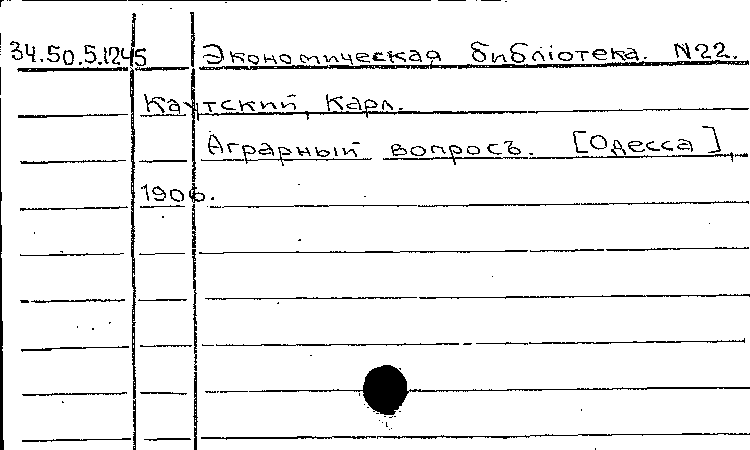 34.50.5.1245 Экономическая библіотека. N22.
Каутский, Карл.
Аграрный вопросъ. [Одесса],
1906.